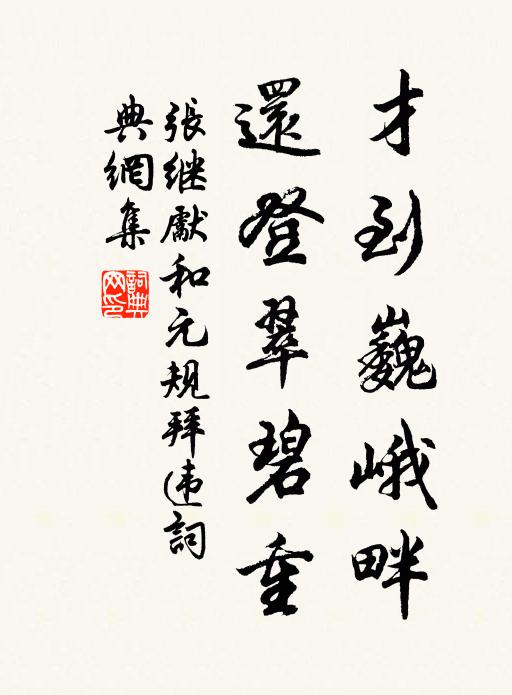 才到巍峨畔
還登翠碧重
張继獻和元规拜违詞
典網集
詞典网印